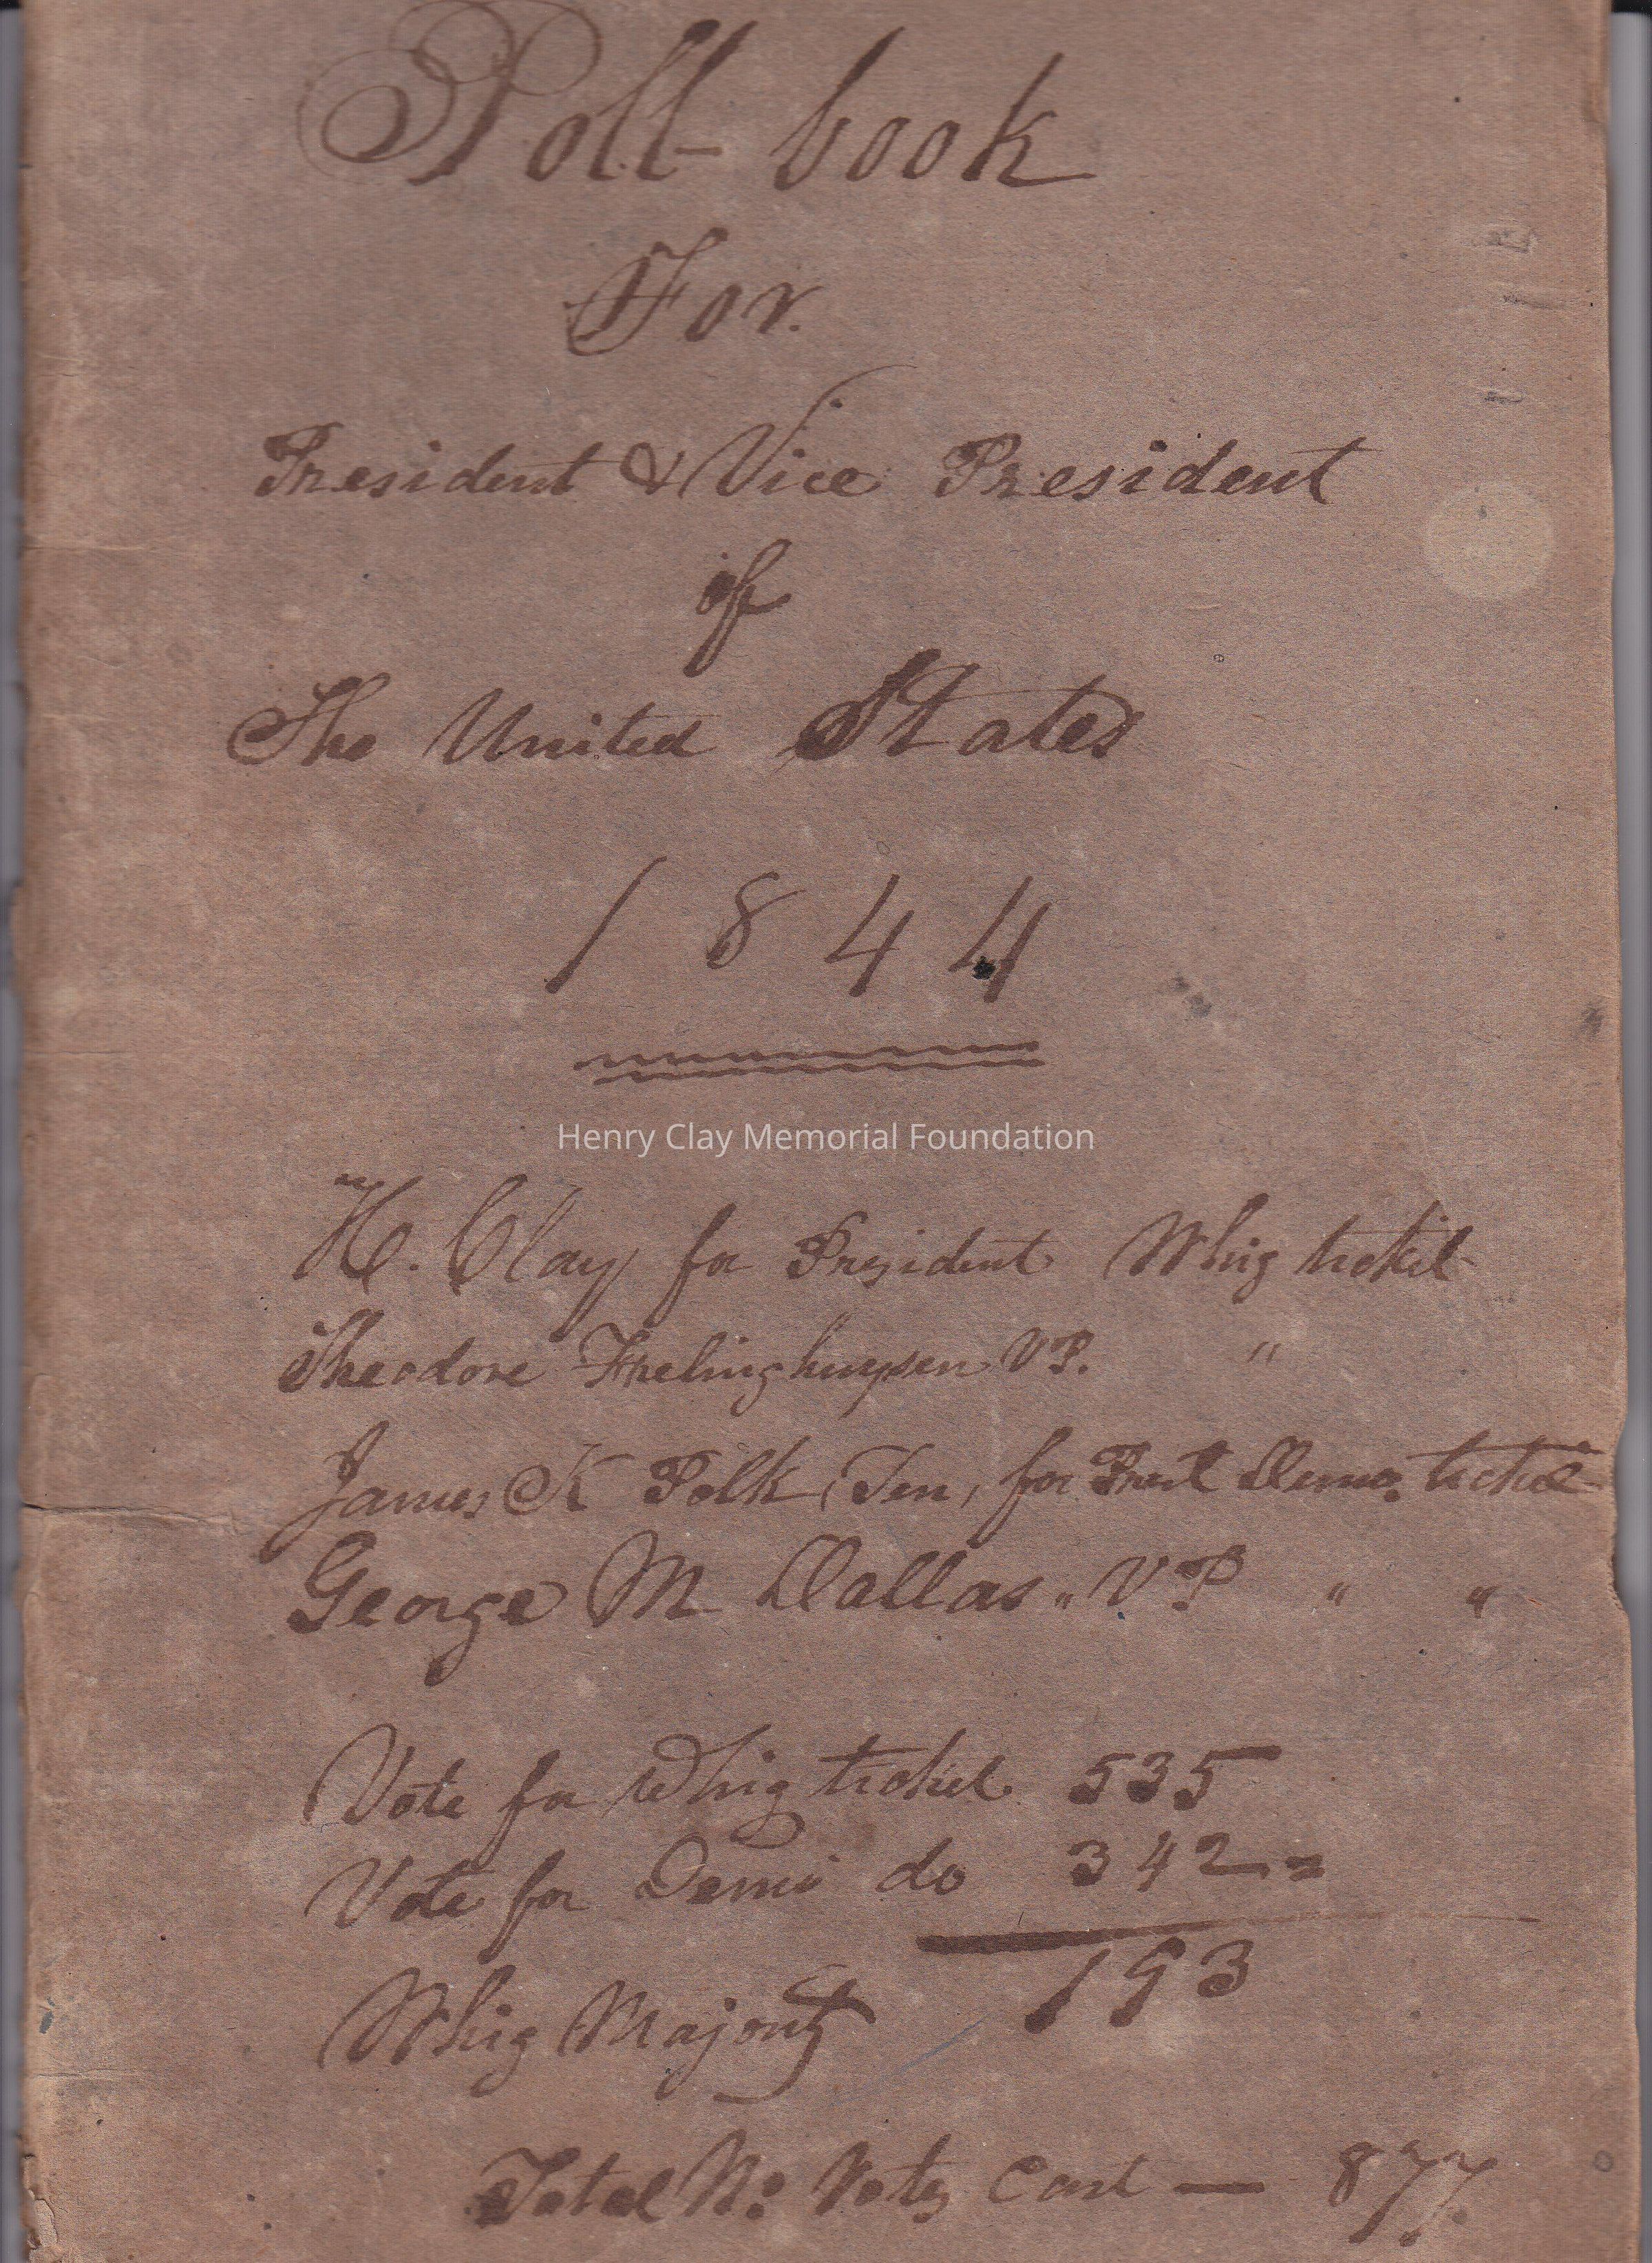 Poll-book
For.
President & Vice President
of
The United States
1844
Henry Clay Memorial Foundation
H. Clay for President Whig ticket
Theodore Frelinghuysen V P. "
James K Polk, Ten, for Prest Demo. ticket
George M Dallas " V P " "
Vote for Whig ticket 535
Vote for Demo do 342 =
193
Whig Majority
Total No Votes Cast — 877.